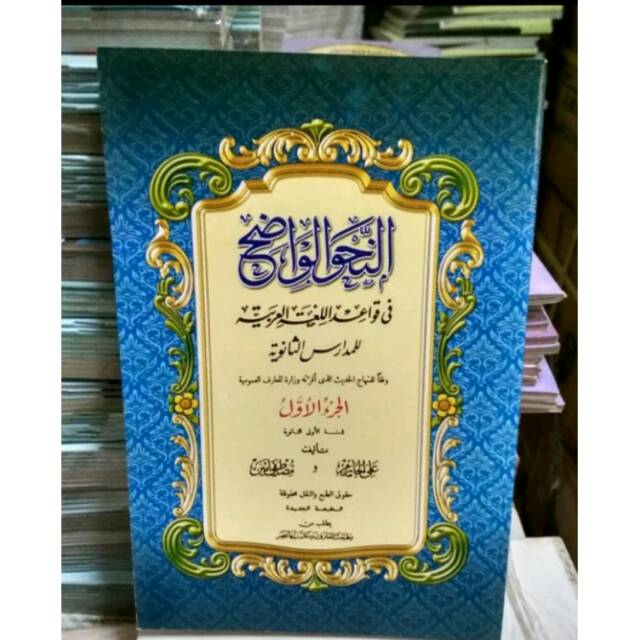 النحو الواضح
في قواعد اللغة العربية
للمدارس الثانوية
وفقا للمنهاج الحديث الذى أقرته وزارة المعارف العمومية
الجزء الأول
للسنة الأولى الثانوية
تأليف
على الجارم و مصطفى أمين
حقوق الطبع والنقل محفوظة
الطبعة الجديدة
يطلب من